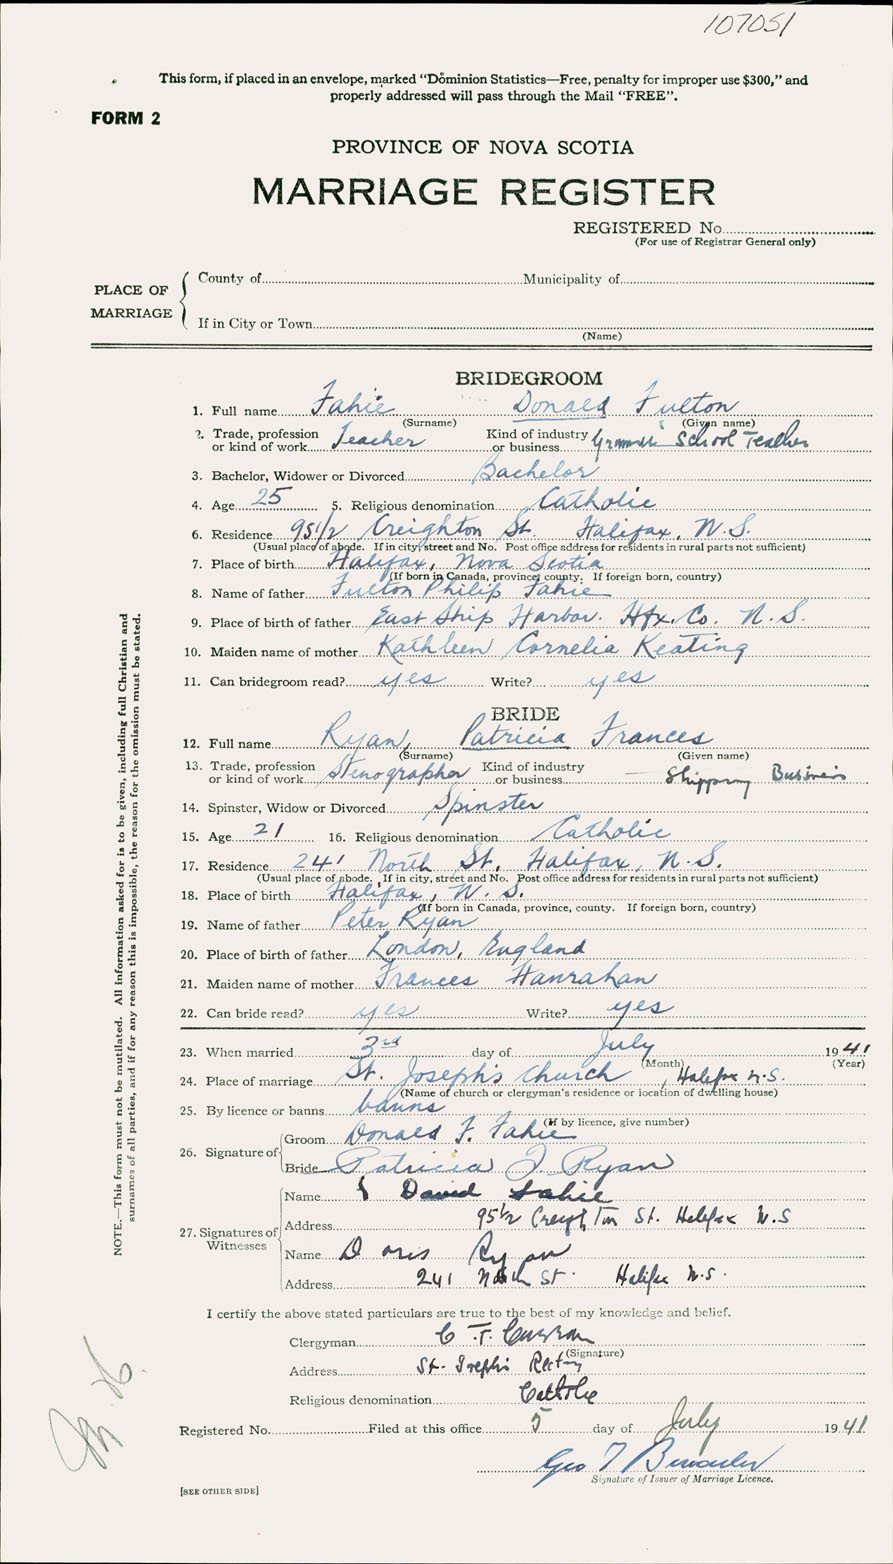 107051
This form, if placed in an envelope, marked "Dominion Statistics—Free, penalty for improper use $300," and
properly addressed will pass through the Mail "FREE".
FORM 2
PROVINCE OF NOVA SCOTIA
MARRIAGE REGISTER
REGISTERED No.
(For use of Registrar General only)
PLACE OF MARRIAGE
County of Municipality of
If in City or Town
(Name)
BRIDEGROOM
1. Full name Fahie Donald Fulton
(Surname) (Given name)
2. Trade, profession or kind of work Teacher Kind of industry or business School Teacher
3. Bachelor, Widower or Divorced Bachelor
4. Age 25 5. Religious denomination Catholic
6. Residence 95 1/2 Creighton St. Halifax, N.S.
(Usual place of abode. If in city, street and No. Post office address for residents in rural parts not sufficient)
7. Place of birth Halifax, Nova Scotia
(If born in Canada, province, county. If foreign born, country)
8. Name of father Fulton Philip Fahie
9. Place of birth of father East Ship Harbor. Hfx. Co. N.S.
10. Maiden name of mother Kathleen Cornelia Keating
11. Can bridegroom read? yes Write? yes
BRIDE
12. Full name Ryan, Patricia Frances
(Surname) (Given name)
13. Trade, profession or kind of work Stenographer Kind of industry or business Shipping Business
14. Spinster, Widow or Divorced Spinster
15. Age 21 16. Religious denomination Catholic
17. Residence 241 North St, Halifax, N.S.
(Usual place of abode. If in city, street and No. Post office address for residents in rural parts not sufficient)
18. Place of birth Halifax, N.S.
(If born in Canada, province, county. If foreign born, country)
19. Name of father Peter Ryan
20. Place of birth of father London, England
21. Maiden name of mother Frances Hanrahan
22. Can bride read? yes Write? yes
23. When married 3rd day of July 1941
(Month) (Year)
24. Place of marriage St. Joseph's Church, Halifax N.S.
(Name of church or clergyman's residence or location of dwelling house)
25. By licence or banns banns
(If by licence, give number)
26. Signature of
Groom Donald F. Fahie
Bride Patricia F Ryan
27. Signatures of Witnesses
Name David Fahie
Address 95 1/2 Creighton St. Halifax N.S
Name Doris Ryan
Address 241 North St. Halifax N.S.
I certify the above stated particulars are true to the best of my knowledge and belief.
Clergyman C. F. Curran
(Signature)
Address St. Joseph's Rectory
Religious denomination Catholic
Registered No. Filed at this office 5 day of July 1941
Geo T
Signature of Issuer of Marriage Licence.
[SEE OTHER SIDE]
NOTE.—This form must not be mutilated. All information asked for is to be given, including full Christian and
surnames of all parties, and if for any reason this is impossible, the reason for the omission must be stated.